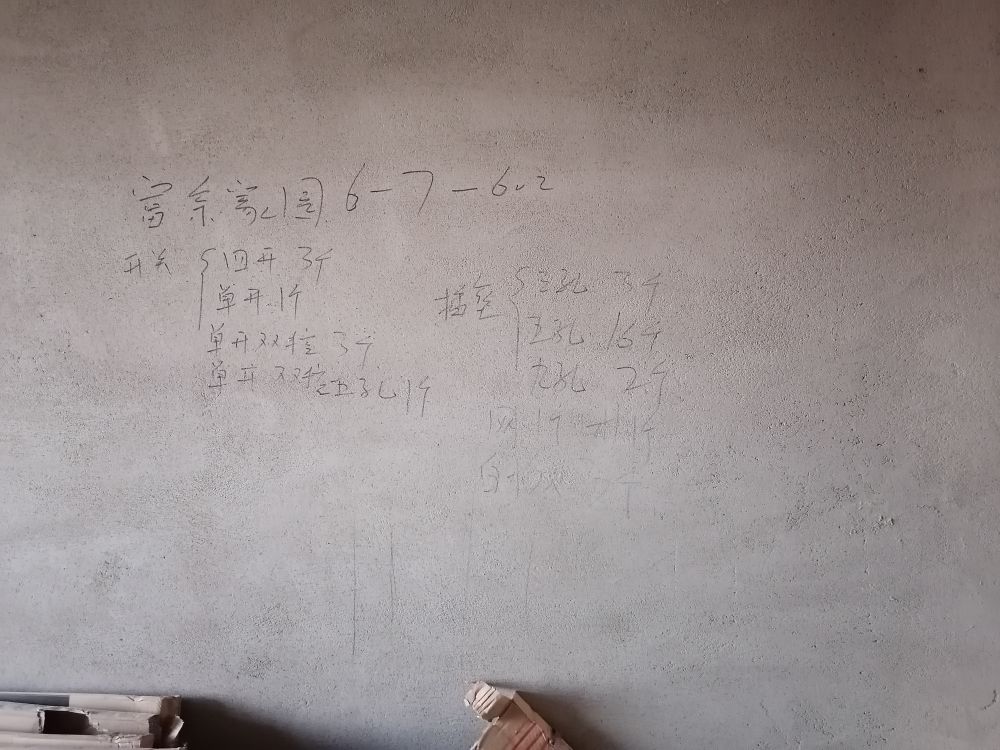 富东家园 6-7-602
开关 四开 3个
单开 1个
单开双控 3个
单开双控五孔 1个
插座 三孔 3个
五孔 16个
九孔 2个
网 1个 1个